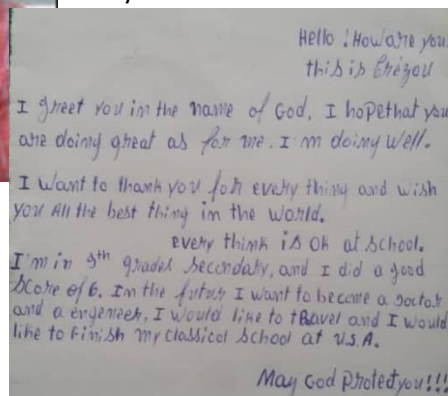 Hello! How are you.
this is Erézou
I greet you in the name of God. I hope that you
are doing great as for me. I'm doing well.
I want to thank you for every thing and wish
you All the best thing in the world.
every think is OK at school.
I'm in 9th grades secondary, and I did a good
score of 6. In the futur I want to become a doctor
and a engeneer, I would like to travel and I would
like to Finish my classical school at U.S.A.
May God protect you!!!